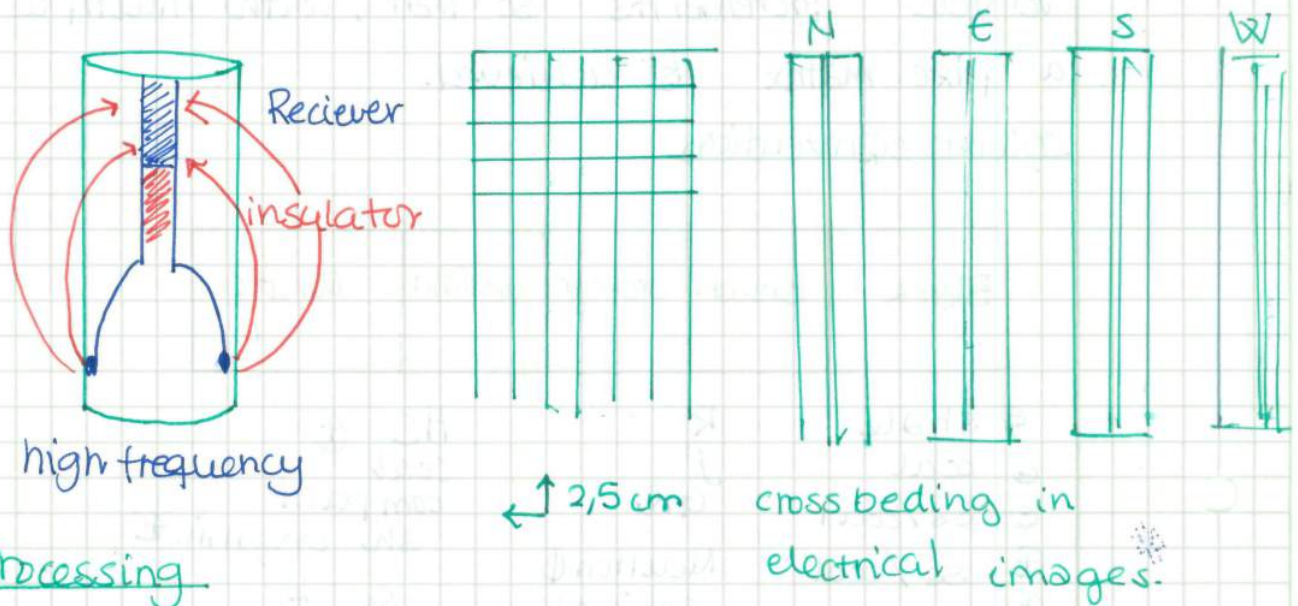 N E S W
Reciever
insulator
high frequency
2,5 cm
cross beding in
electrical images.
rocessing